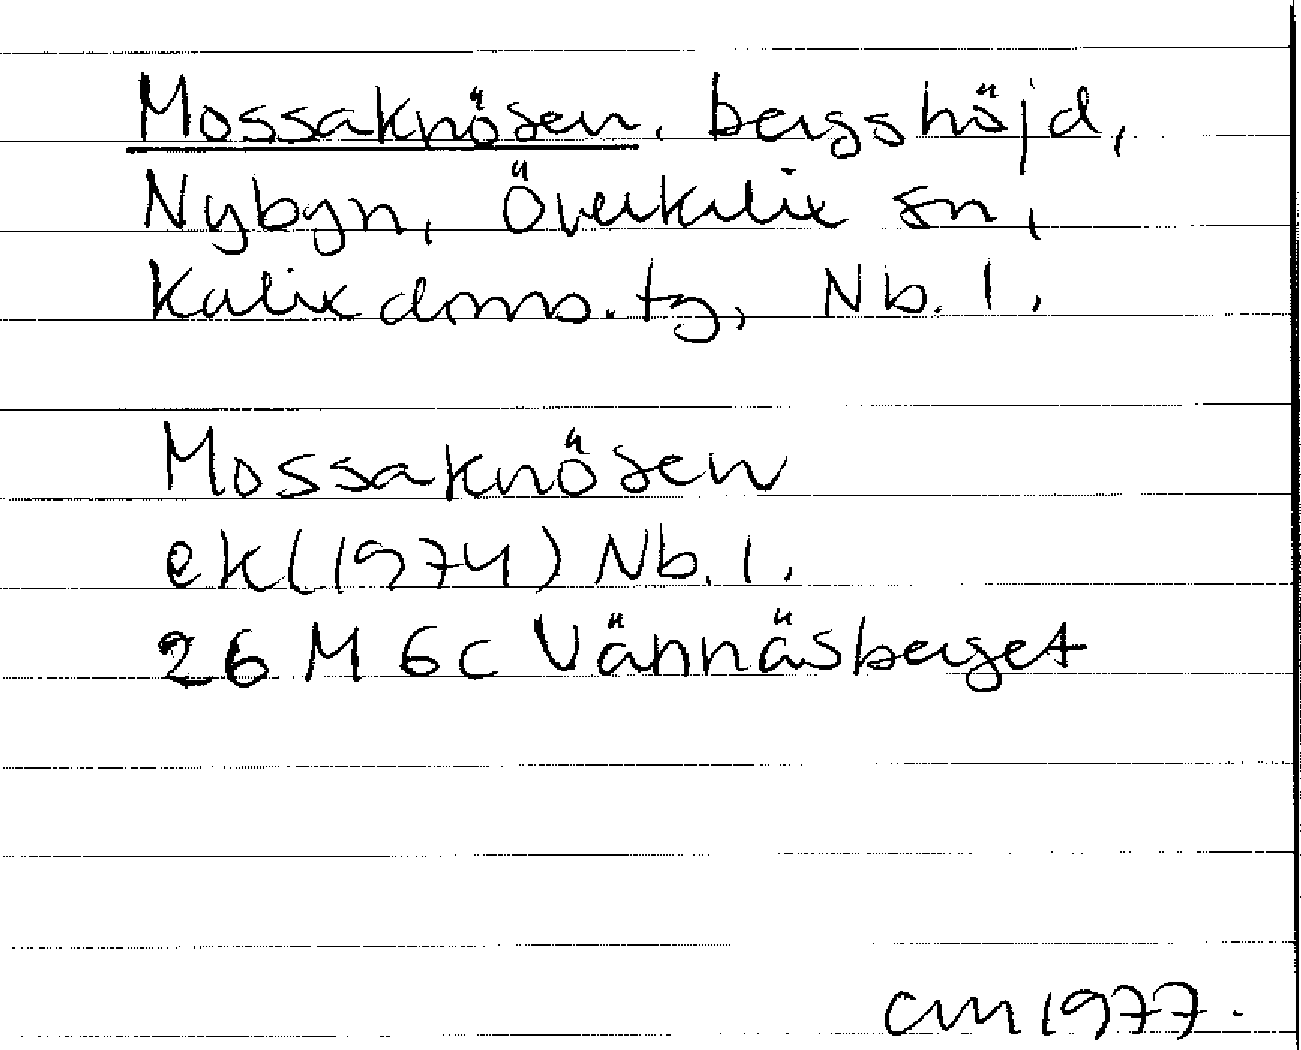 Mossaknösen, bergshöjd,
Nybyn, Överkalix sn,
Kalix doms.tg, Nb.l.
Mossaknösen
ek(1974) Nb.l.
26 M 6c Vännäsberget
CM 1977.